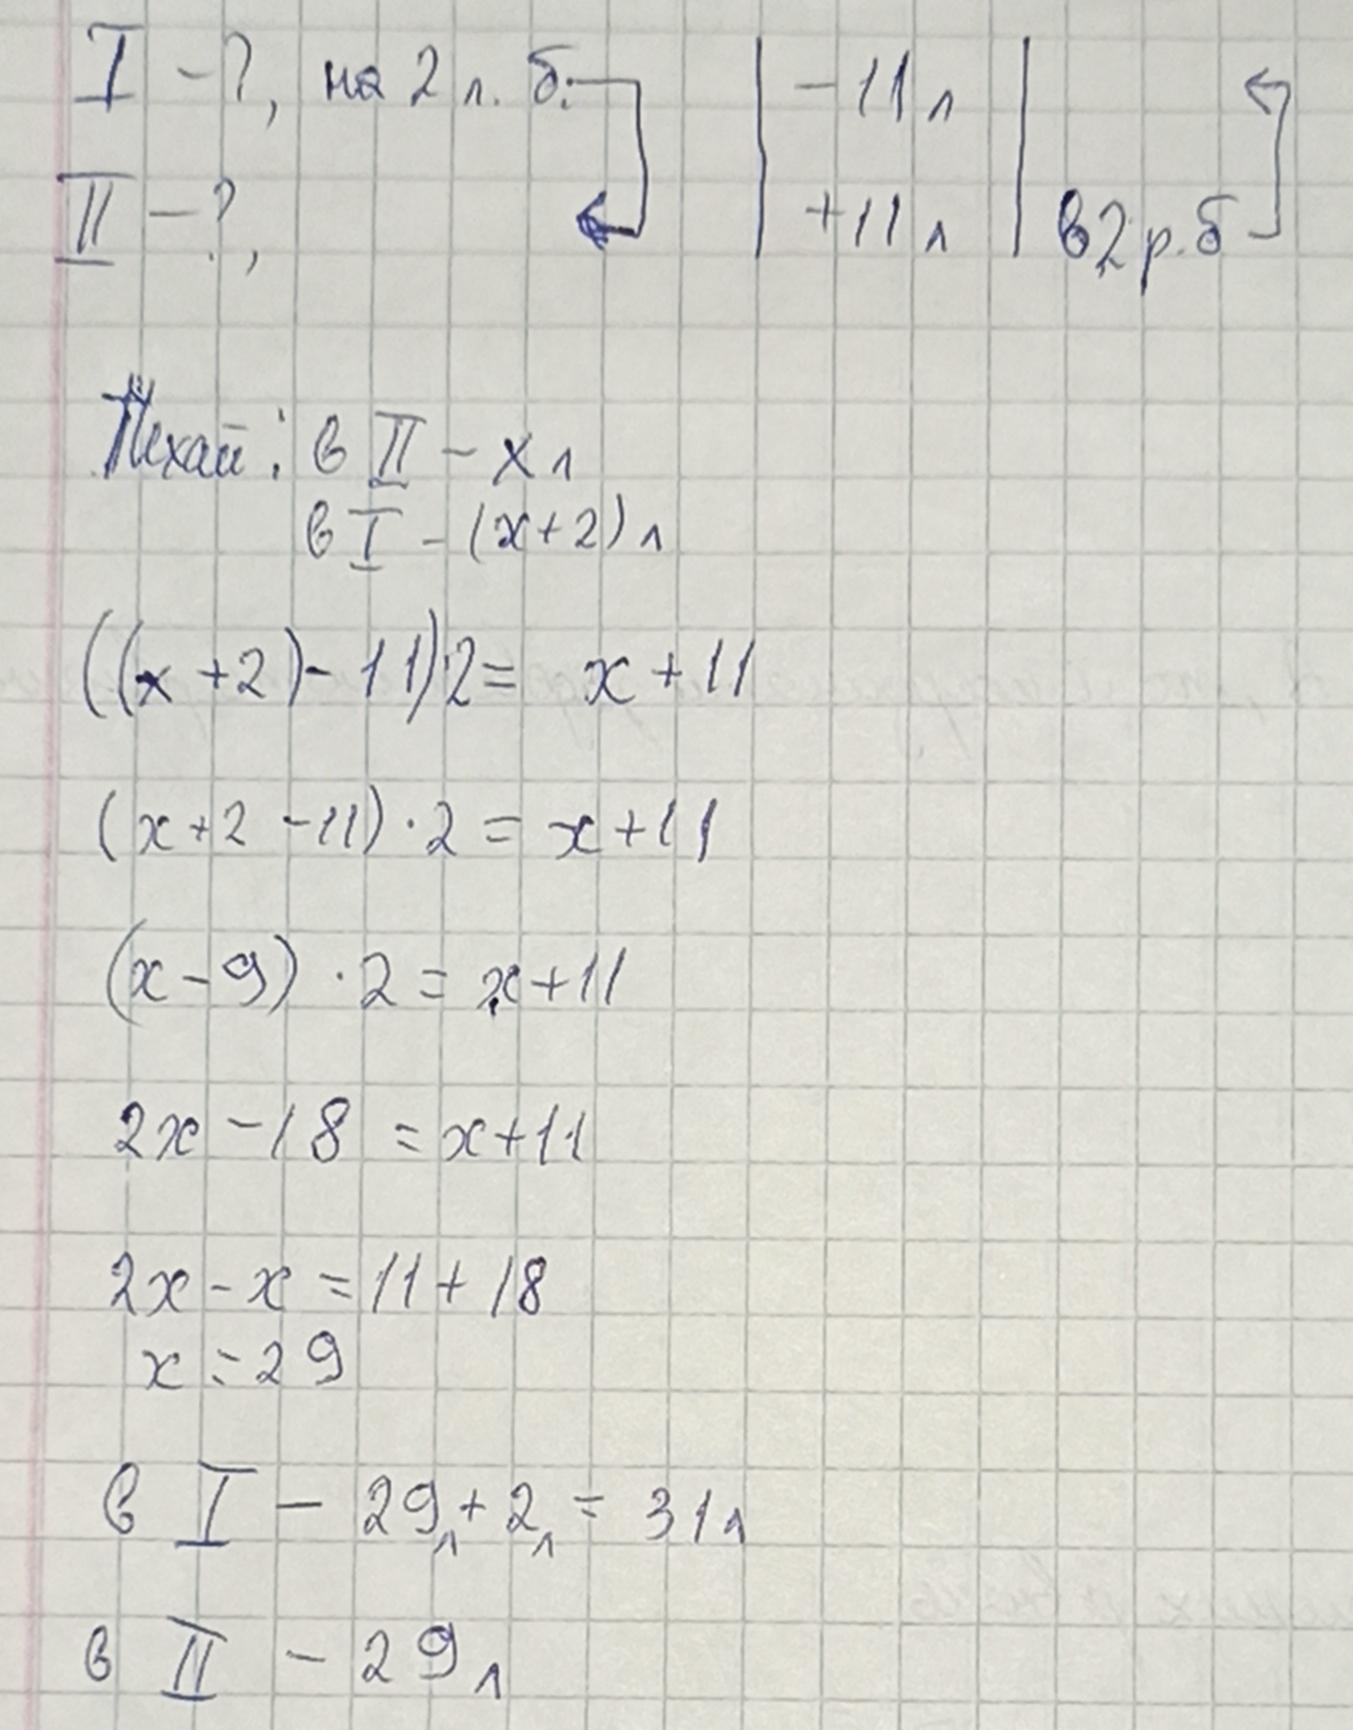 I - ?, на 2 л. б. | - 11 л |
II - ?, | + 11 л | в 2 р. б
Нехай: в II - x л
в I - (x+2) л
((x + 2) - 11) 2 = x + 11
(x + 2 - 11) · 2 = x + 11
(x - 9) · 2 = x + 11
2x - 18 = x + 11
2x - x = 11 + 18
x = 29
в I - 29л + 2л = 31л
в II - 29л